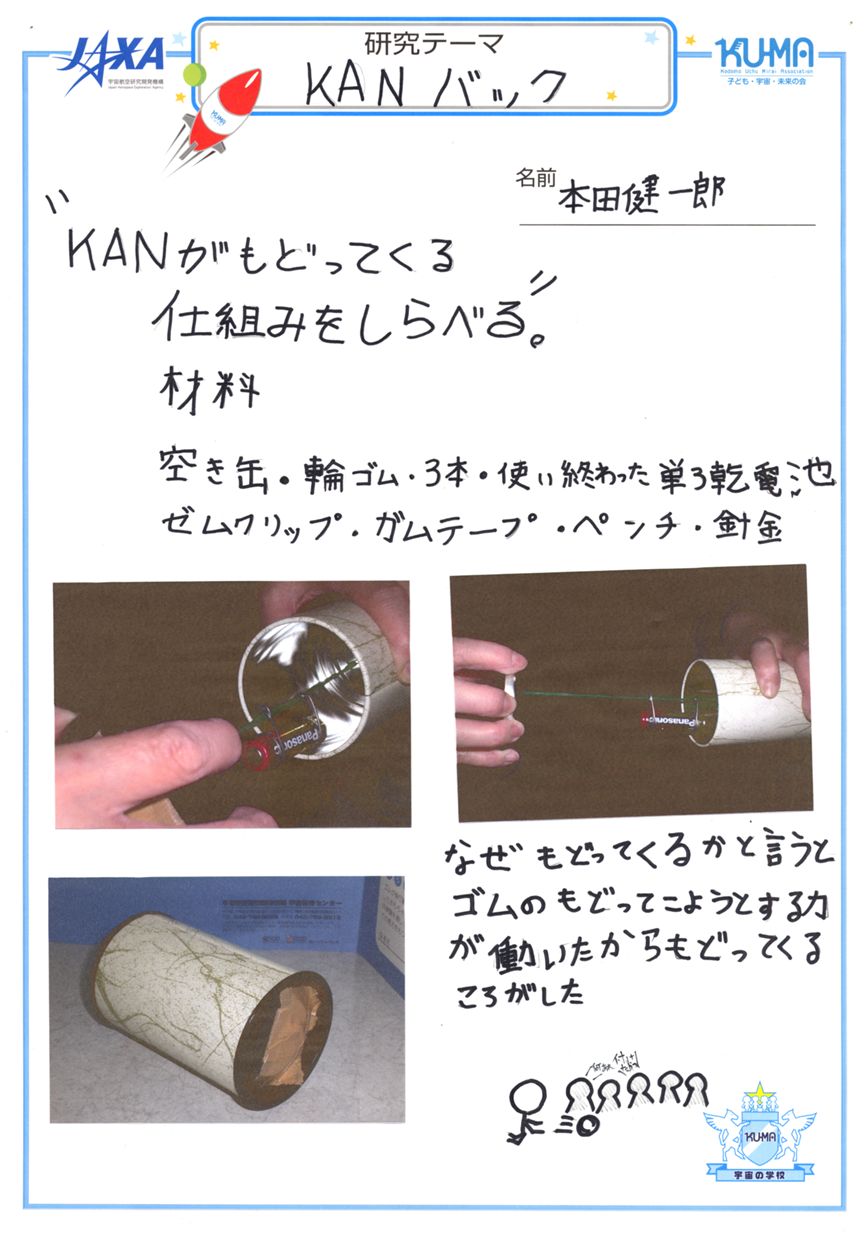 JAXA
宇宙航空研究開発機構
Japan Aerospace Exploration Agency
研究テーマ
KAN バック
KU-MA
Kodomo Uchu Mirai Association
子ども・宇宙・未来の会
KU-MA
名前 本田健一郎
"KANがもどってくる
仕組みをしらべる。"
材料
空き缶・輪ゴム・3本・使い終わった単3乾電池
ゼムクリップ・ガムテープ・ペンチ・針金
Panasonic
Panasonic
なぜもどってくるかと言うと
ゴムのもどってこようとする力
が働いたからもどってくる
ころがした
KU-MA
宇宙の学校